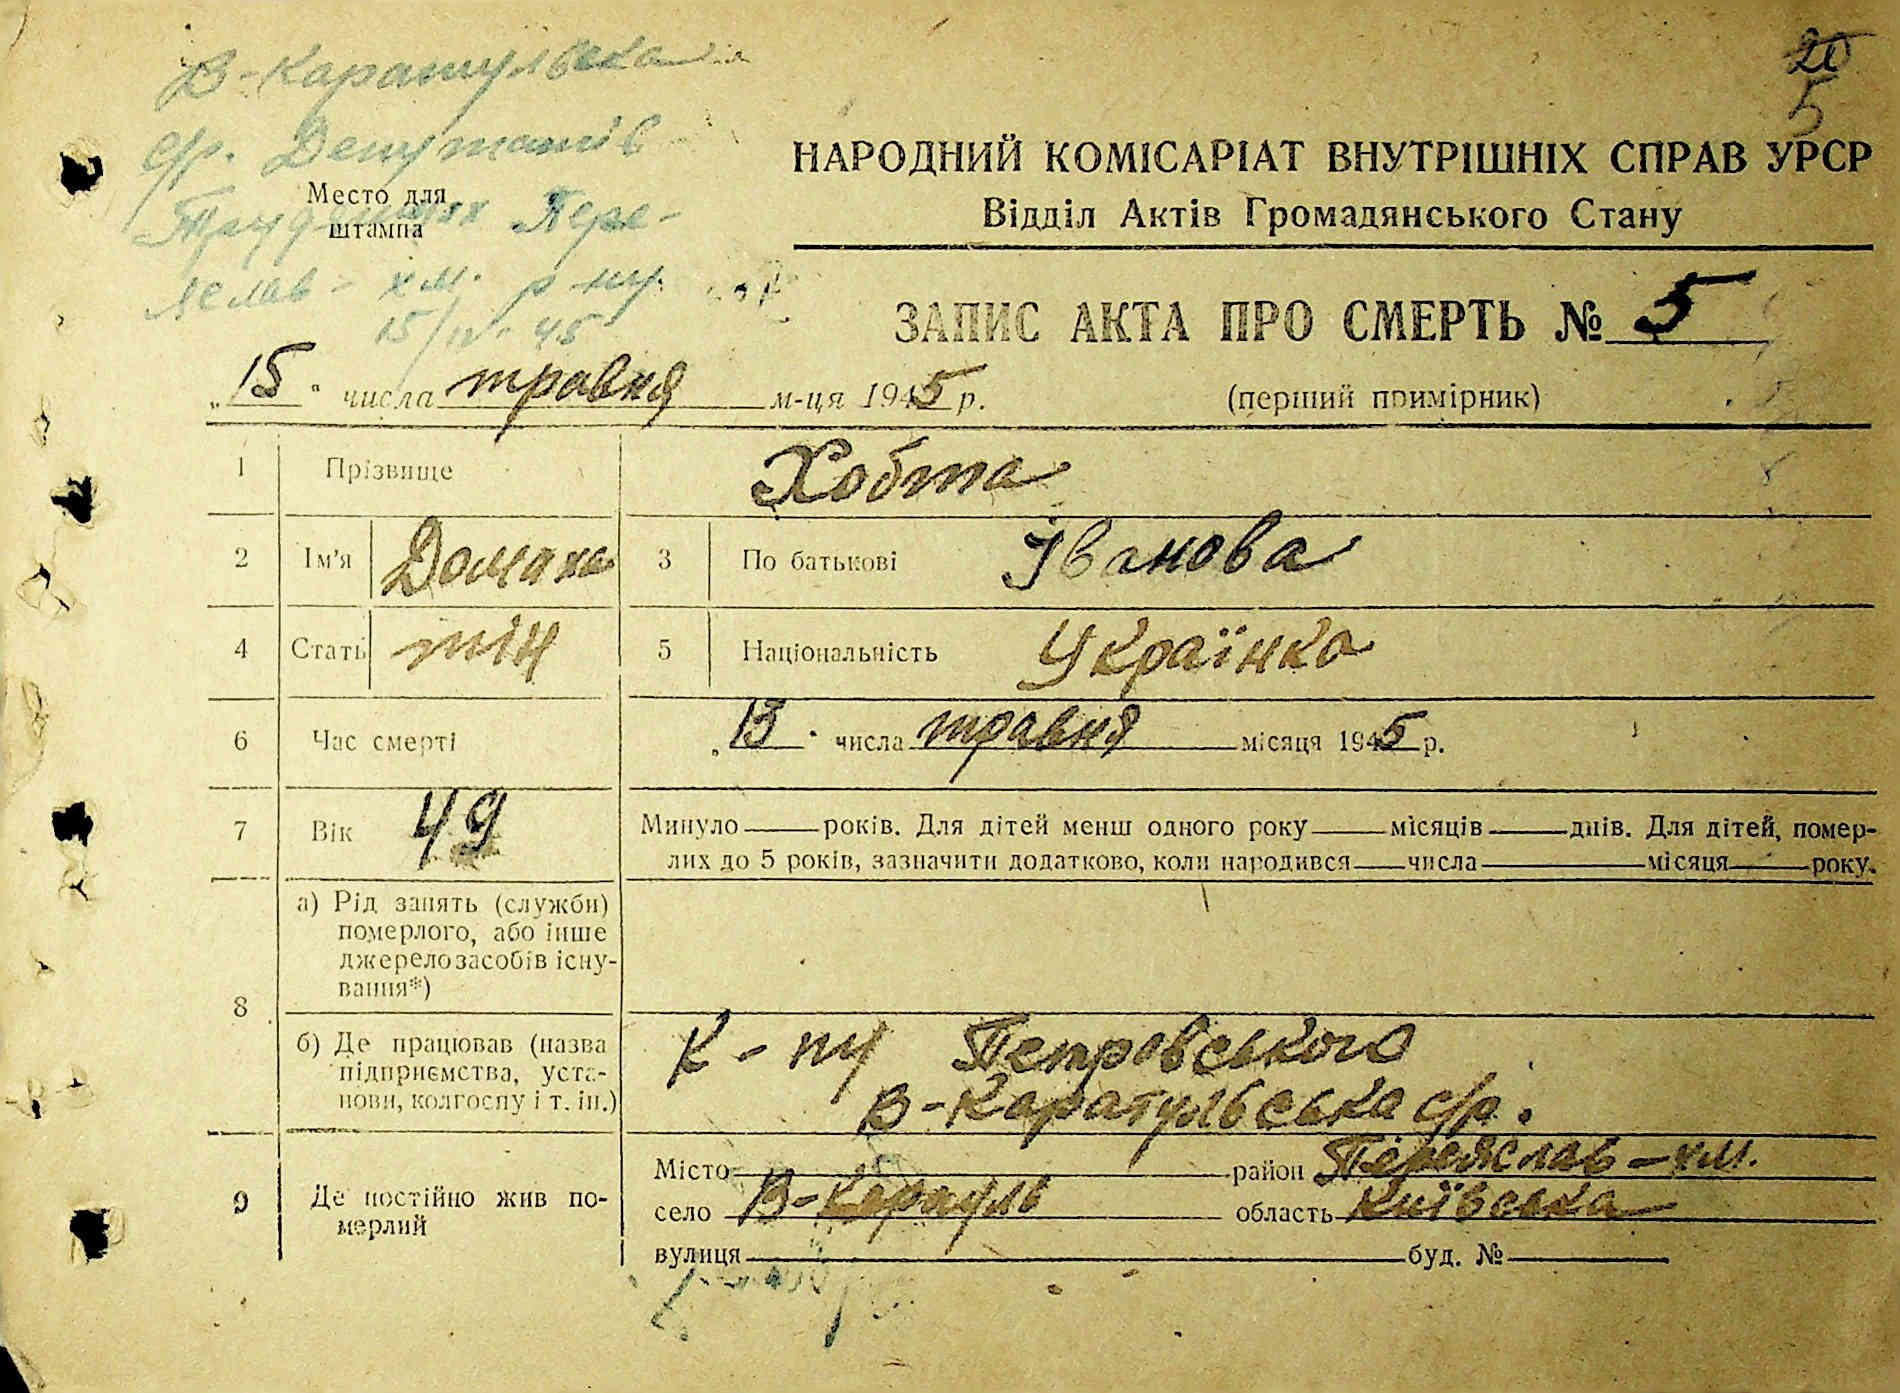 20
5
В-Каратульська
с/р. Депутатів
Трудящих Пере-
яслав - хм. р-ну.
15/IV- 45
Место для
штампа
НАРОДНИЙ КОМІСАРІАТ ВНУТРІШНІХ СПРАВ УРСР
Відділ Актів Громадянського Стану
ЗАПИС АКТА ПРО СМЕРТЬ № 5
„15" числа травня м-ця 1945 р. (перший примірник)
1 Прізвище Хобта
2 Ім'я Домаха 3 По батькові Іванова
4 Стать жін 5 Національність Українка
6 Час смерті „13" числа травня місяця 1945 р.
7 Вік 49 Минуло років. Для дітей менш одного року місяців днів. Для дітей, помер-
лих до 5 років, зазначити додатково, коли народився числа місяця року.
8 а) Рід занять (служби)
померлого, або інше
джерело засобів існу-
вання*)
б) Де працював (назва
підприємства, уста-
нови, колгоспу і т. ін.)
К-пу Петровського
В-Каратульська с/р.
9 Де постійно жив по-
мерлий
Місто район Переяслав-хм.
село В-Каратуль область Київська
вулиця буд. №